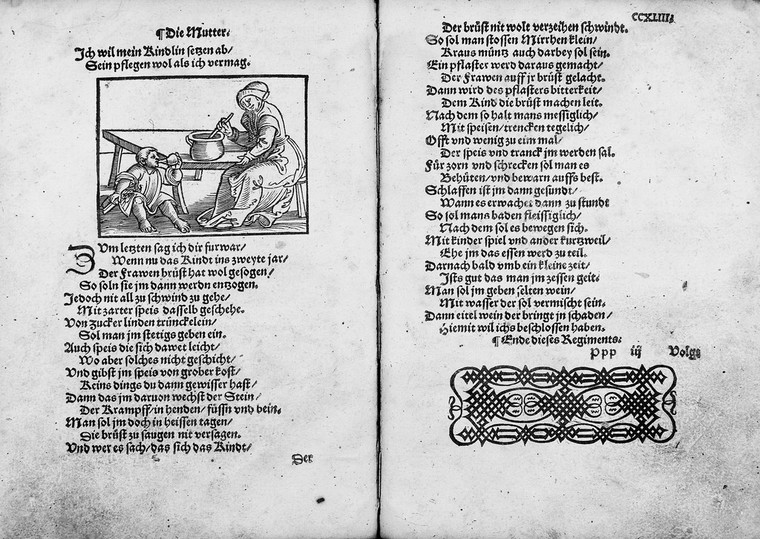 ¶ Die Mutter.
Ich wil mein Kindlin setzen ab/
Sein pflegen wol als ich vermag.
Zum letzten sag ich dir furwar/
Wenn nu das Kindt ins zweyte jar/
Der Frawen brüst hat wol gesogen/
So soln sie jm dann werdn entzogen.
Jedoch nit all zu schwind zu gehe/
Mit zarter speis dasselb geschehe.
Von zucker linden trüncklein/
Sol man jm stetigs geben ein.
Auch speis die sich dawet leicht/
Wo aber solches nicht geschicht/
Vnd gibst jm speis von grober kost/
Keins dings du dann gewisser hast/
Dann das jm daruon wechst der Stein/
Der Krampff/ in henden/ füssn vnd bein.
Man sol jm doch in heissen tagen/
Die brüst zu saugen nit versagen.
Vnd wer es sach/ das sich das Kindt/
Der
CCXLIIII.
Der brüst nie wolt verzeihen schwindt.
So sol man stossen Mirrhen klein/
Kraus müntz auch darbey sol sein.
Ein pflaster werd daraus gemacht/
Der Frawen auff jr brüst gelacht.
Dann wird des pflasters bitterkeit/
Dem Kind die brüst machen leit.
Nach dem so halt mans messiglich/
Mit speisen/ trencken tegelich/
Offt vnd wenig zu eim mal/
Der speis vnd tranck jm werden sal.
Für zorn vnd schrecken sol man es
Behüten/ vnd bewarn auffs best.
Schlaffen ist jm dann gesundt/
Wann es erwachet dann zu stundt
So sol mans baden fleissiglich/
Nach dem sol es bewegen sich.
Mit kinder spiel vnd ander kurtzweil/
Ehe jm das essen werd zu teil.
Darnach bald vmb ein kleine zeit/
Ists gut das man jm zessen geit.
Man sol jm geben selten wein/
Mit wasser der sol vermischt sein.
Dann eitel wein der bringt jn schaden/
Hiemit wil ichs beschlossen haben.
¶ Ende dieses Regiments.
Ppp iij Volgt